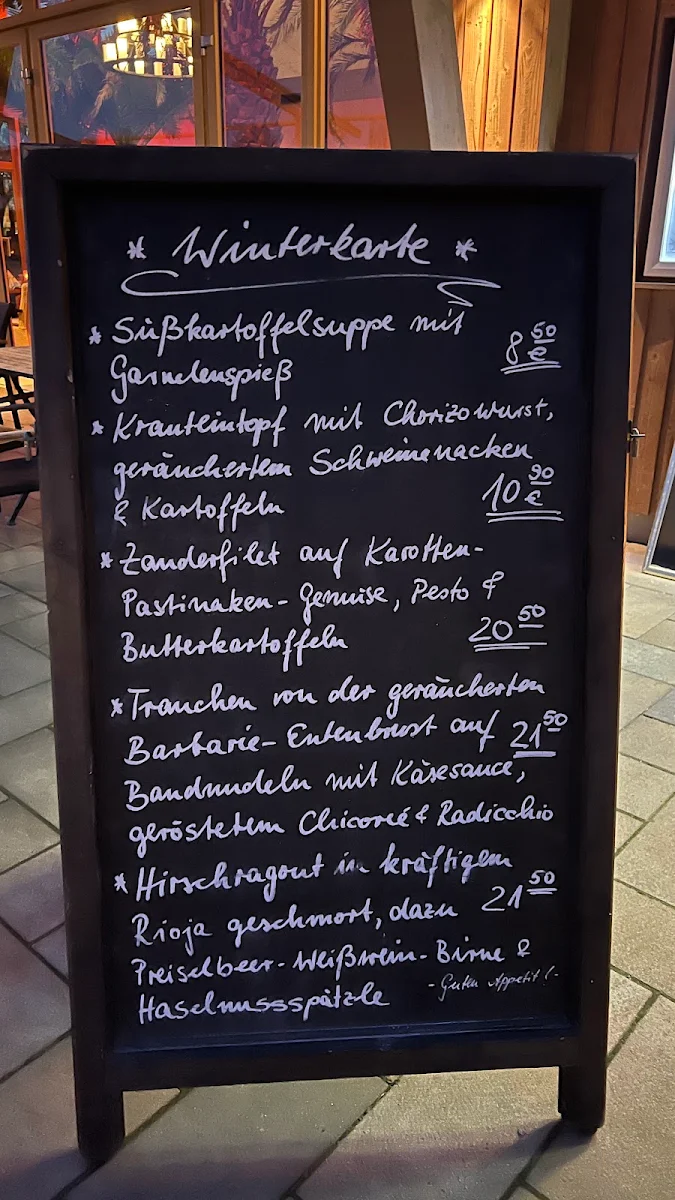 * Winterkarte *
* Süßkartoffelsuppe mit
Garnelenspieß 8 50 €
* Krauteintopf mit Chorizowurst,
geräuchertem Schweinenacken
& Kartoffeln 10 90 €
* Zanderfilet auf Karotten-
Pastinaken-Gemüse, Pesto &
Butterkartoffeln 20 50
* Tranchen von der geräucherten
Barbarie-Entenbrust auf 21 50
Bandnudeln mit Käsesauce,
geröstetem Chicoreé & Radicchio
* Hirschragout in kräftigem
Rioja geschmort, dazu 21 50
Preiselbeer-Weißwein-Birne &
Haselnussspätzle - Guten Appetit! -